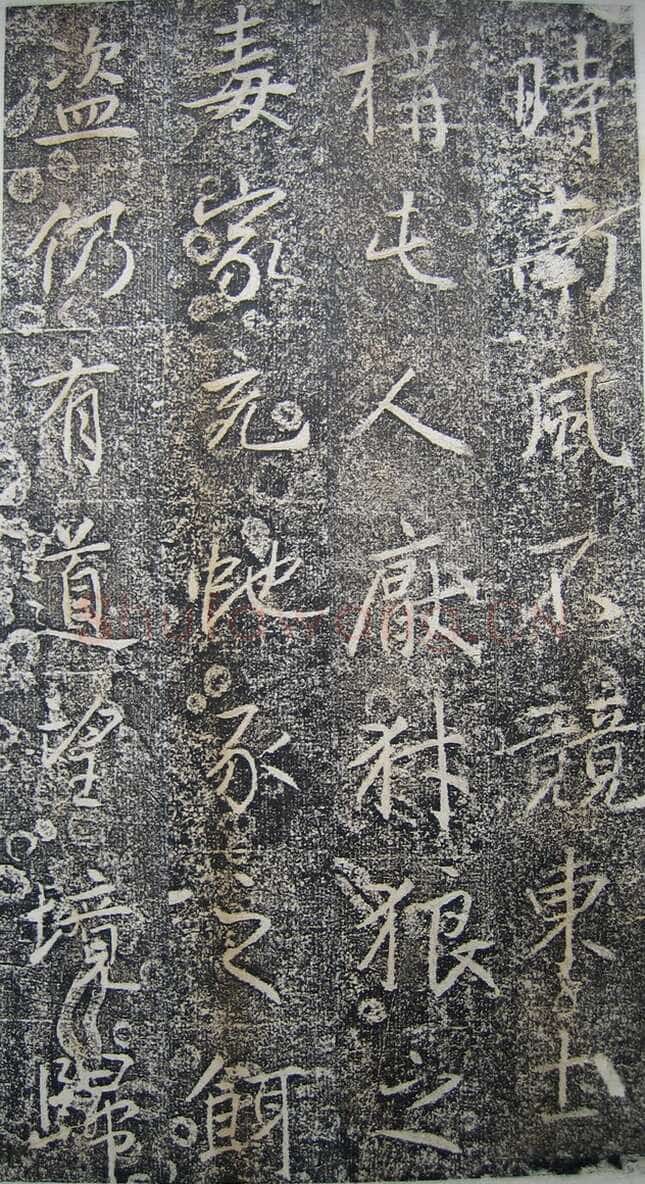 時南風不競東土
構屯人厭豺狼之
毒家充虵豕之餌
盜仍有道望境歸